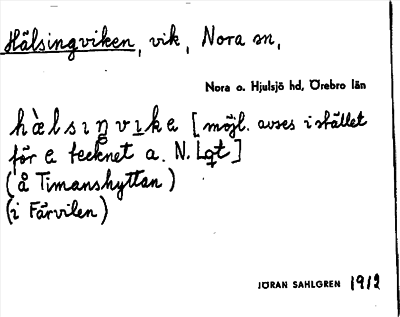 Hälsingviken, vik, Nora sn,
Nora o. Hjulsjö hd, Örebro län
hæ̀lsıŋvıka [möjl. avses i stället
för a tecknet a. N. Lqt]
(å Timanshyttan)
(i Färvilen)
JÖRAN SAHLGREN 1912